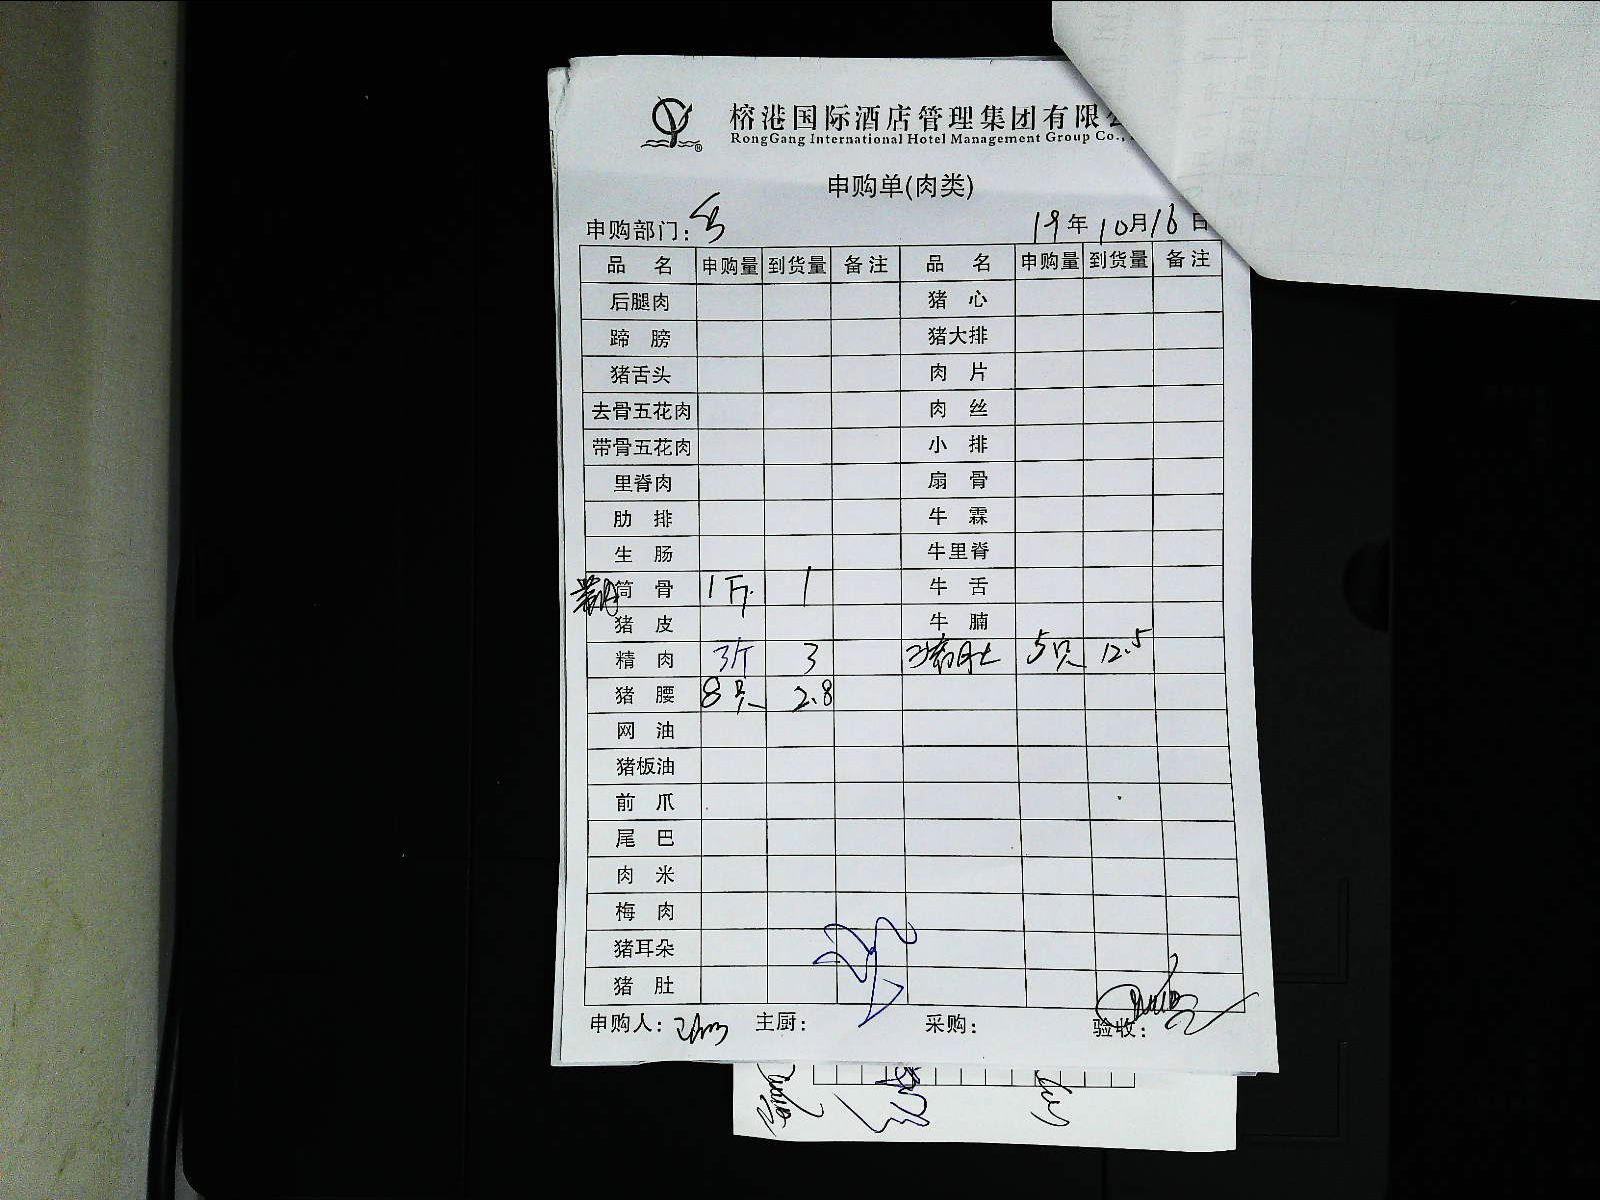 榕港国际酒店管理集团有限
RongGang International Hotel Management Group Co.,
申购单(肉类)
申购部门: 19年10月16日
品 名 申购量 到货量 备注 品 名 申购量 到货量 备注
后腿肉 猪 心
蹄 膀 猪大排
猪舌头 肉 片
去骨五花肉 肉 丝
带骨五花肉 小 排
里脊肉 扇 骨
肋 排 牛 霖
生 肠 牛里脊
筒 骨 1斤 1 牛 舌
猪 皮 牛 腩
精 肉 3斤 3 猪肚 5只 12.5
猪 腰 8只 2.8
网 油
猪板油
前 爪
尾 巴
肉 米
梅 肉
猪耳朵
猪 肚
申购人: 主厨: 采购: 验收: